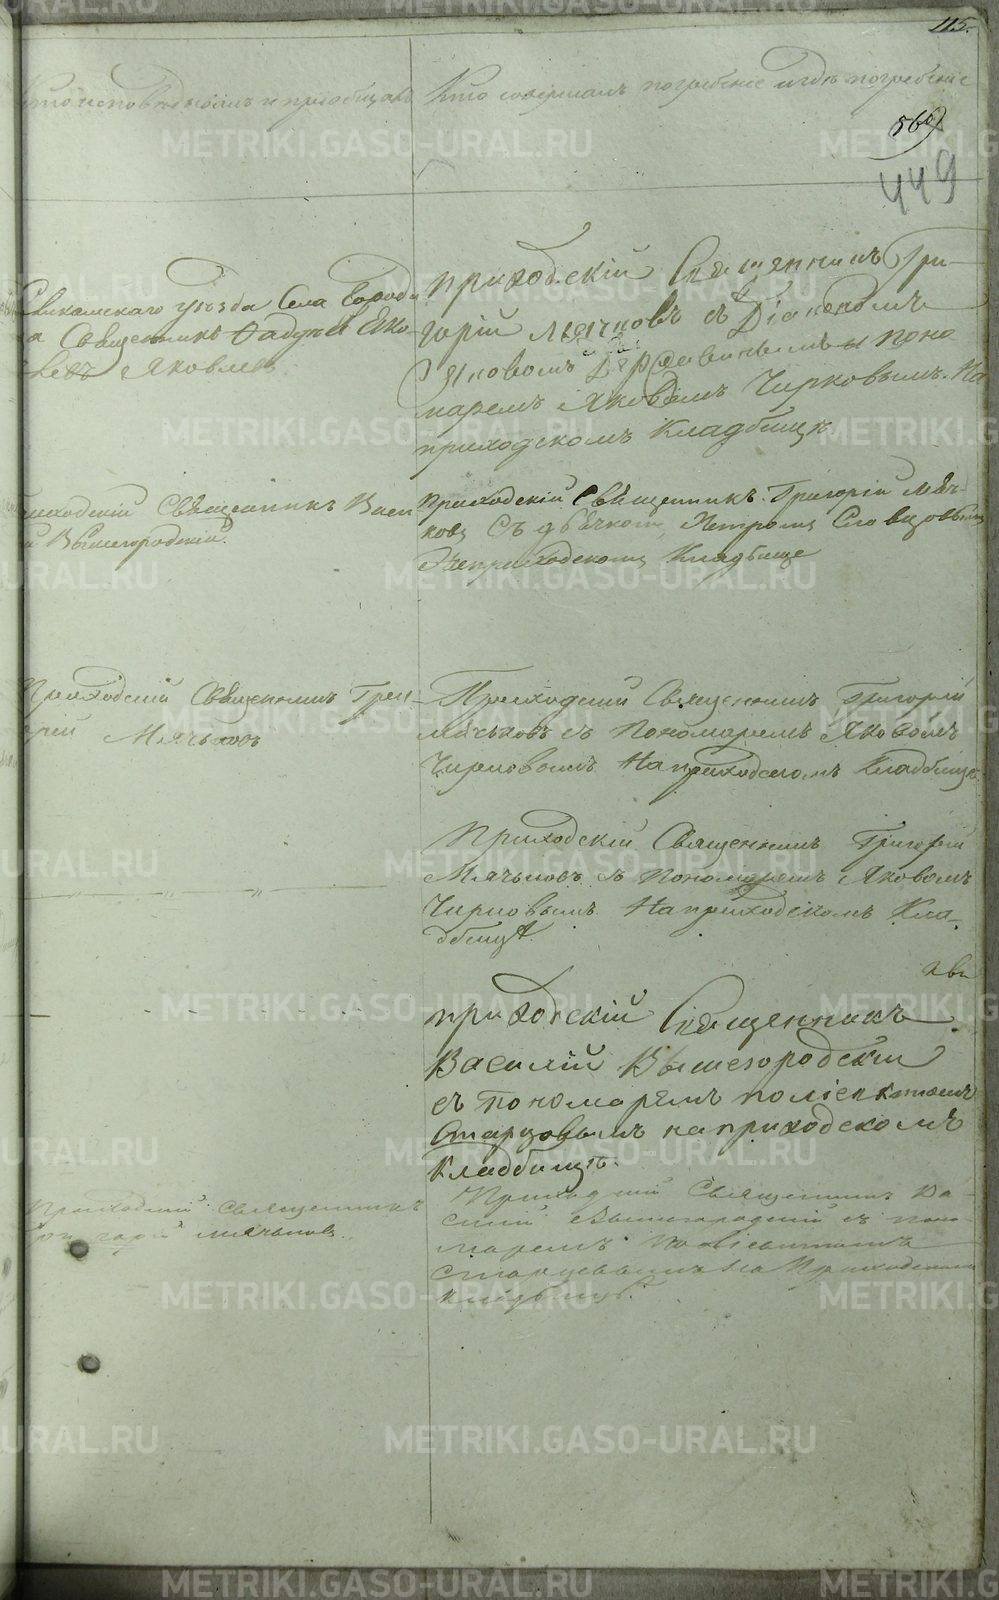 115.
Кто исповедывалъ и пріобщалъ
Кто совершалъ погребеніе и гдѣ погребены
560
449
уѣзда Села Городи
Священникъ Яко
Яковлевъ
приходскій Священникъ Гри-
горій Мячковъ съ Діакономъ
Яковомъ и поно
маремъ Яковомъ Чирковымъ. На
приходскомъ Кладбищѣ.
Священникъ Васи
й Вышегородскій.
приходскій Священникъ Григорій Мяч-
ковъ Съ дьячкомъ Петромъ Словцовымъ
На приходскомъ Кладбище
Приходскій Священникъ Григ
орій Мячьковъ
Приходскій Священникъ Григорій
Мячьковъ съ Пономаремъ Яковомъ
Чирковымъ На приходскомъ Кладбищѣ.
Приходскій Священникъ Григорій
Мячьковъ съ Пономаремъ Яковомъ
Чирковымъ На приходскомъ Кла-
дбищѣ.
приходскій Священникъ
Василій Вышегородскій
съ пономаремъ поліекктомъ
Старцовымъ на приходскомъ
Кладбищѣ.
Приходскій Священникъ
Григорій Мячьковъ
Приходскій Священникъ Ва-
силій Вышегородскій съ поно
маремъ Поліектомъ
Старцевымъ на Приходскомъ
Кладбищѣ.
METRIKI.GASO-URAL.RU